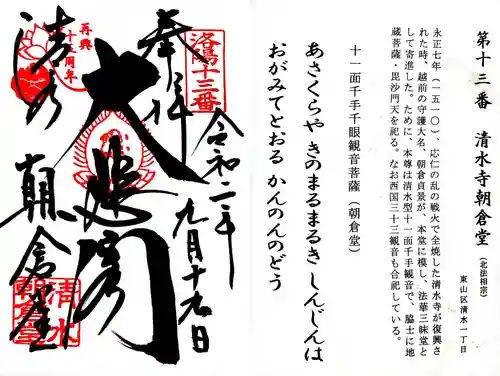 第十三番 清水寺朝倉堂(北法相宗)
東山区清水一丁目
永正七年(一五一〇)、応仁の乱の戦火で全焼した清水寺が復興さ
れた時、越前の守護大名、朝倉貞景が、本堂に模し、法華三昧堂と
して寄進した。ために、本尊は清水型十一面千手観音で、脇士に地
蔵菩薩・毘沙門天を祀る。なお西国三十三観音も合祀している。
十一面千手千眼観音菩薩(朝倉堂)
あさくらや きのまるまるき しんじんは
おがみてとおる かんのんのどう
洛陽十三番
奉拝
令和二年
九月十九日
大悲閣
再興
十五周年
清水
朝倉堂
清水
朝倉堂